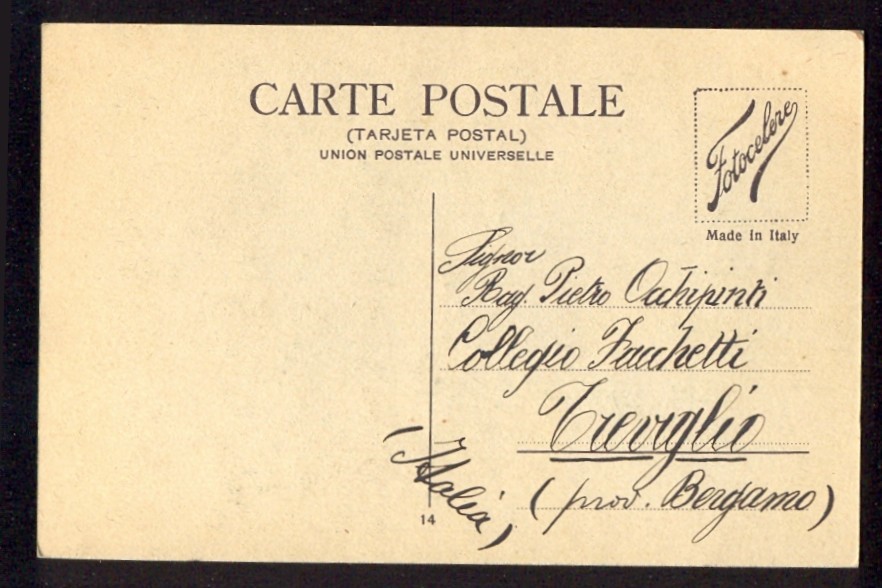 CARTE POSTALE
(TARJETA POSTAL)
UNION POSTALE UNIVERSELLE
Fotocelere
Made in Italy
Signor
Rag. Pietro Occhipinti
Collegio Facchetti
Treviglio
(prov. Bergamo)
(Italia)
14